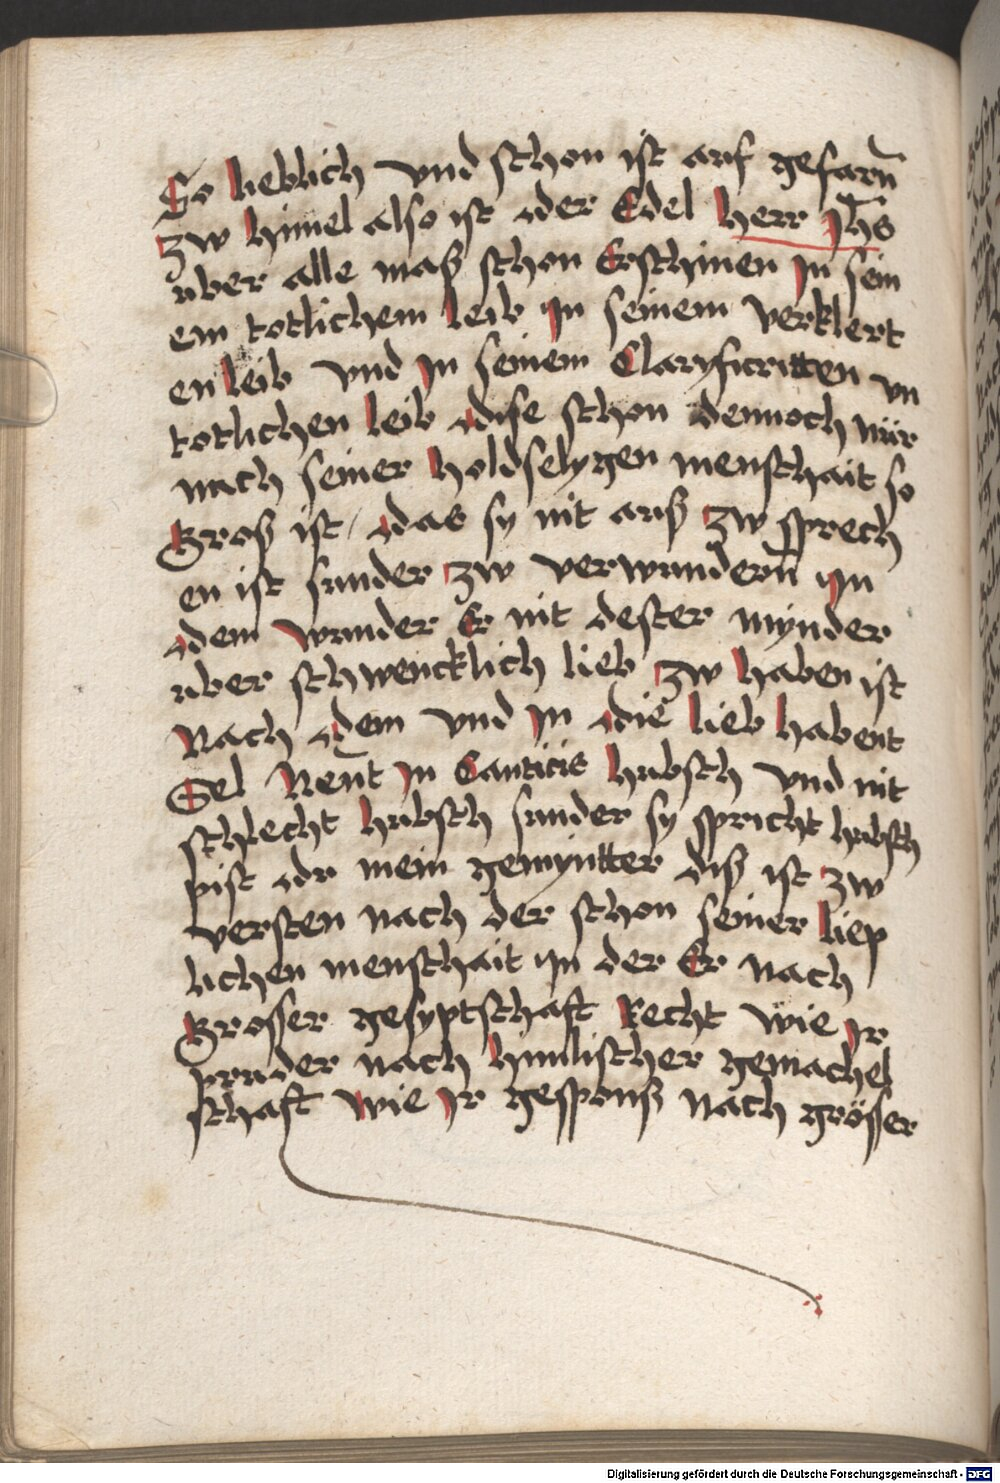 So lieblich vnd schon ist auf gefarn̄
zw himel also ist der Edel herr Jh̄s
vber alle maß schon Erschinen Jn sein
em totlichem leib Jn seinem verklert
en leib vnd Jn seinem Claryficritten vn
totlichen leib dise schon dennoch nur
nach seiner holdselygen menschait so
Groß ist / das sy nit auß zw sprech
en ist sunder zw verwundern̄ yn
dem wunder Er nit dester mynder
vber schwencklich lieb zw haben ist
Nach dem vnd Jn die lieb habent
Sel Nen̄t Jn Canticis hubsch vnd nit
schlecht hubsch sunder sy spricht hubsch
pist dv mein gemyntter diß ist zw
versten nach der schon seiner liep
lichen menschait yn der Er nach
Grosser gesyptschaft Recht wie Jr
pruder nach himlischer gemachel
schaft wie Jr gesponß nach grösser
Digitalisierung gefördert durch die Deutsche Forschungsgemeinschaft - DFG